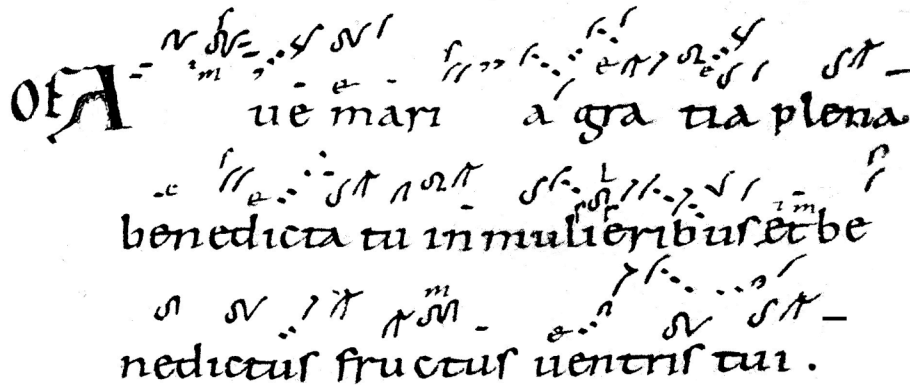 OF AUE MARI A gra tia plena
benedicta tu in mulieribus et be
nedictus fructus uentris tui .